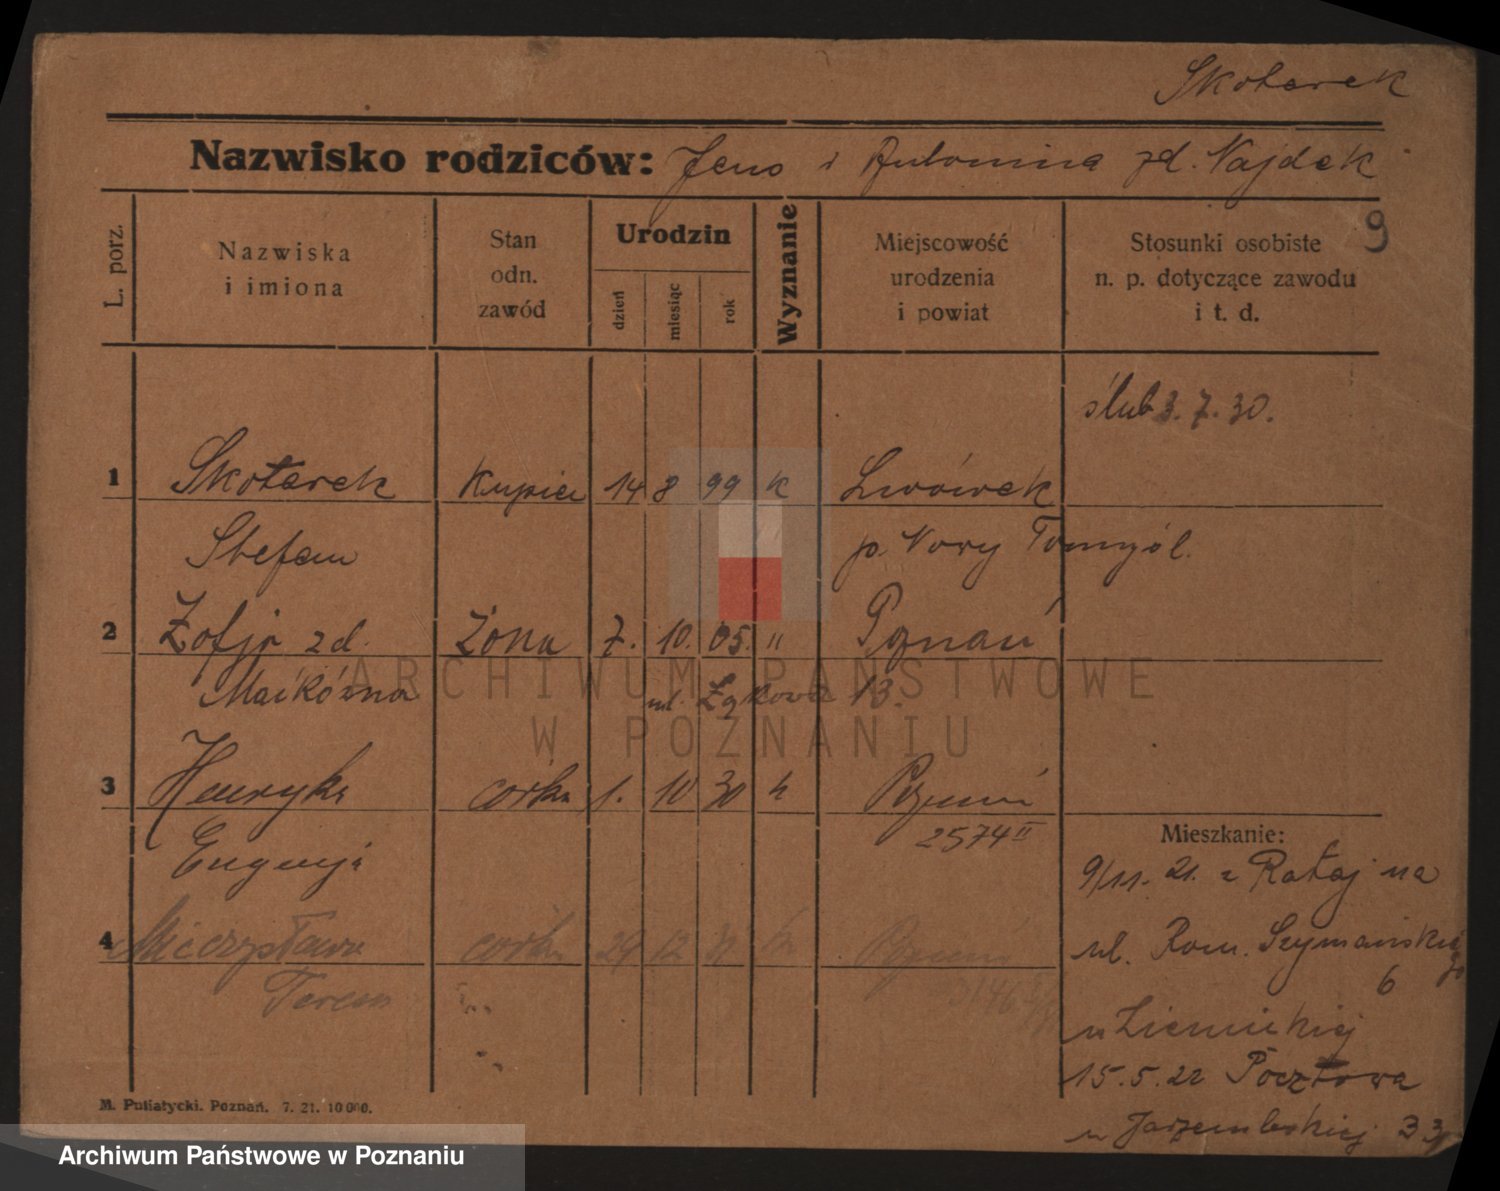 Skotarek
Nazwisko rodziców: Jan i Antonina zd. Najdek
9
L. porz.
Nazwiska i imiona
Stan odn. zawód
Urodzin
dzień
miesiąc
rok
Wyznanie
Miejscowość urodzenia i powiat
Stosunki osobiste n. p. dotyczące zawodu i t. d.
ślub 3. 7. 30.
1 Skotarek kupiec 14 8 99 k Lwówek
Stefan p. Nowy Tomyśl.
2 Zofja zd. żona 7. 10. 05. " Poznań
ul. Łąkowa 13.
3 Henryka córka 1. 10 30 k Poznań
2574 II
Eugenja
Mieszkanie:
9/11. 21. z Rataj na
4 Mieczysława córka 29 12 k Poznań
ul. Rom. Szymańskiego
6
Teresa
15.5.22 Pocztowa
M. Putiatycki. Poznań. 7. 21. 10000.
ARCHIWUM PAŃSTWOWE
W POZNANIU
Archiwum Państwowe w Poznaniu